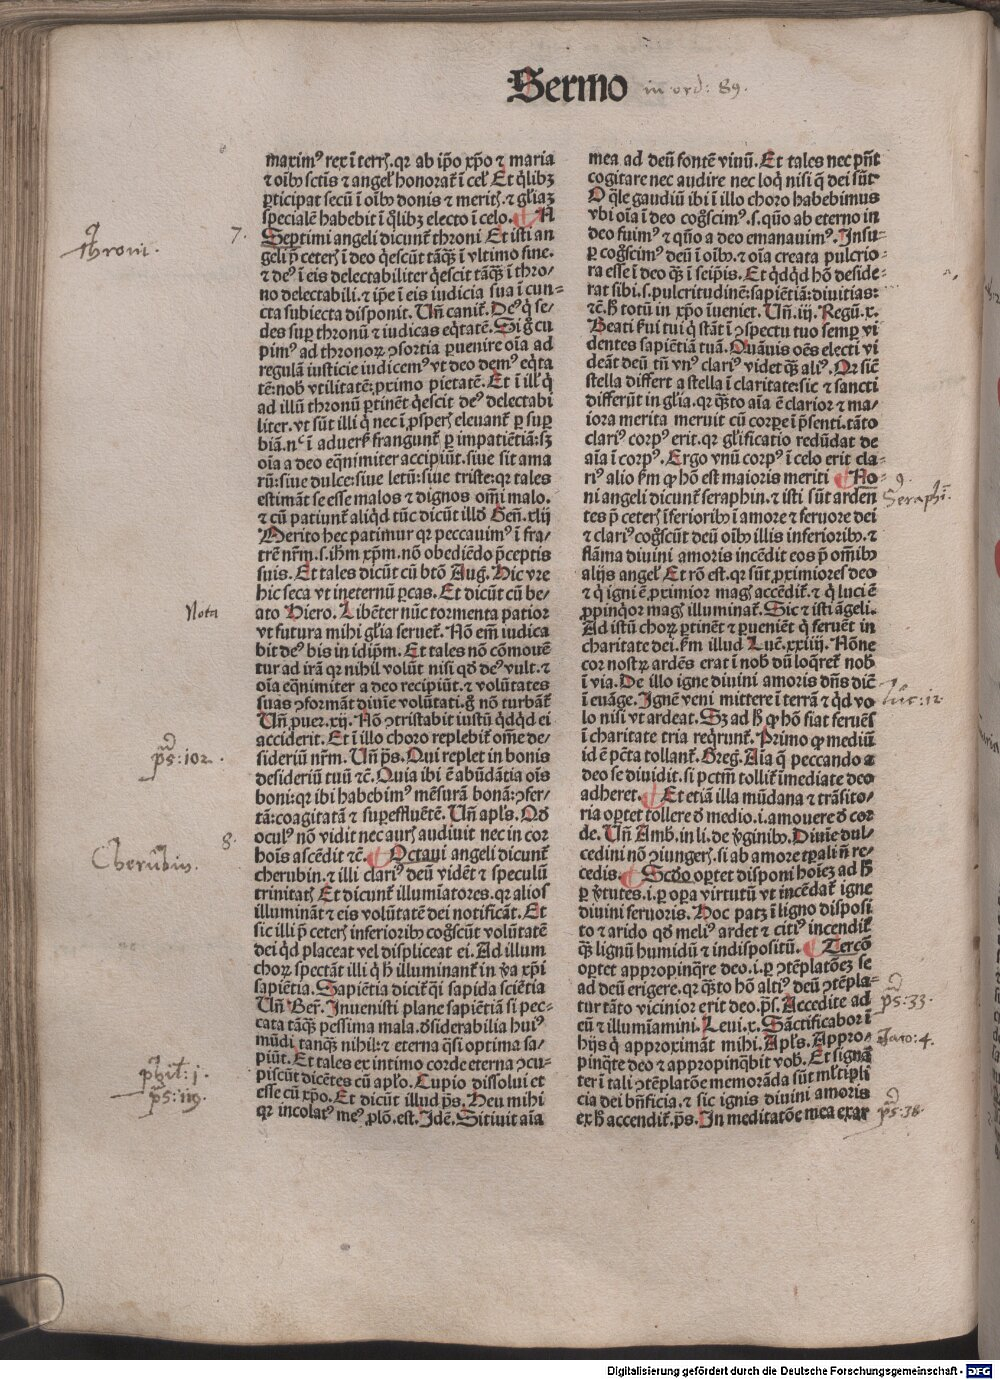 Sermo in ord: 89.
maximꝰ rex ī terrꝭ. qꝛ ab ip̄o xp̄o ⁊ maria
⁊ oībꝫ sctīs ⁊ angeł honorat᷑ ī celꝭ Et qͥlibꝫ
ꝑticipat secū ī oībꝫ donis ⁊ meritꝭ. ⁊ gl̄iaꝫ
specialē habebit ī qͥlibꝫ electo ī celo. ¶ A
Septimi angeli dicunt᷑ throni Et isti an
geli p̄ ceterꝭ ī deo qͥescūt tāqꝫ ī vltimo fine.
⁊ deꝰ ī eis delectabiliter qͥescit tāqꝫ ī thro⸗
no delectabili. ⁊ ip̄e ī eis iudicia sua ī cun⸗
cta subiecta disponit. Vn̄ canit᷑. Deꝰ qͥ se⸗
des suꝑ thronū ⁊ iudicas eqͥtatē. Si gͦ cu
pimꝰ ad thronoꝝ ↄsortia ꝑuenire oīa ad
regulā iusticie iudicemꝰ vt deo demꝰ eqͥta
tē: nob̄ vtilitatē: ꝓximo pietatē. Et ī illꝭ qͥ
ad illū thronū ꝑtinēt qͥescit deꝰ delectabi
liter. vt sūt illi qͥ nec ī ꝓsperꝭ eleuant᷑ ꝑ suꝑ
biā. nͨ ī aduerẜ frangunt᷑ ꝑ impatiētiā: sꝫ
oīa a deo eqͣnimiter accipiūt. siue sit ama
rū: siue dulce: siue letū: siue triste: qꝛ tales
estimāt se esse malos ⁊ dignos om̄i malo.
⁊ cū patiunt᷑ aliqͥd tūc dicūt illḋ Gen̄. xlij
Merito hec patimur qꝛ peccauimꝰ ī fra⸗
trē nr̄m. s. ihm̄ xp̄m. nō obediēdo p̄ceptis
suis. Et tales dicūt cū btō Auḡ. Hic vre
hic seca vt ineternū ꝑcas. Et dicūt cū be⸗
ato Hiero. Libēter nūc tormenta patior
vt futura mihi gl̄ia seruet᷑. Nō em̄ iudica
bit deꝰ bis in idip̄m. Et tales nō cōmouē
tur ad irā qꝛ nihil volūt nisi qḋ deꝰ vult. ⁊
oīa eqͣnimiter a deo recipiūt. ⁊ volūtates
suas ↄformāt diuīe volūtati. gͦ nō turbāt᷑
Vn̄ puer. xij. Nō ↄtristabit iustū qͥdqͥd ei
acciderit. Et ī illo choro replebit᷑ om̄e de⸗
sideriū nr̄m. Vn̄ p̄s. Qui replet in bonis
desideriū tuū ⁊c̄. Quia ibi ē abūdātia oīs
boni: qꝛ ibi habebimꝰ mēsurā bonā: ↄfer⸗
tā: coagitatā ⁊ suꝑeffluētē. Vn̄ apl̄s. Qḋ
oculꝰ nō vidit nec aurꝭ audiuit nec in cor
hoīs ascēdit ⁊c̄. ¶ Octaui angeli dicunt᷑
cherubin. ⁊ illi clariꝰ deū vidēt ⁊ speculū
trinitatꝭ Et dicunt᷑ illumīatores. qꝛ alios
illumināt ⁊ eis volūtatē dei notificāt. Et
sic illi p̄ ceterꝭ inferioribꝫ cogͦscūt volūtatē
dei qͥd placeat vel displiceat ei. Ad illum
choꝝ spectāt illi qͥ h̄ illuminant᷑ in v̄a xp̄i
sapiētia. Sapiētia dicit᷑ qͣsi sapida sciētia
Vn̄ Ber̄. Inuenisti plane sapiētiā si pec⸗
cata tāqꝫ pessima mala. ḋsiderabilia huiꝰ
mūdi tanqꝫ nihil: ⁊ eterna qͣsi optima sa⸗
piūt. Et tales ex intimo corde eterna ↄcu⸗
piscūt dicētes cū apl̄o. Cupio dissolui et
esse cū xp̄o. Et dicūt illud p̄s. Heu mihi
qꝛ incolatꝰ meꝰ ꝓlō. est. Idē. Sitiuit aīa
mea ad deū fontē viuū. Et tales nec pn̄t
cogitare nec audire nec loqͥ nisi q̄ dei sūt
O qͣle gaudiū ibi ī illo choro habebimus
vbi oīa ī deo cogͦscimꝰ. s. qͣuo ab eterno in
deo fuimꝰ ⁊ qͣuo a deo emanauimꝰ. Insu⸗
ꝑ cogͦscimꝰ deū ī oībꝫ. ⁊ oīa creata pulcrio⸗
ra esse ī deo qͣꝫ ī seip̄is. Et qͥdqͥd hō deside⸗
rat sibi. s. pulcritudinē: sapiētiā: diuitias:
⁊c̄. h̄ totū in xp̄o īueniet. Vn̄. iij. Regū. x.
Beati ẜui tui qͥ stāt ī ↄspectu tuo semꝑ vi
dentes sapiētiā tuā. Quāuis oēs electi vi
deāt deū tn̄ vnꝰ clariꝰ videt qͣꝫ aliꝰ. Qꝛ sic̄
stella differt a stella ī claritate: sic ⁊ sancti
differūt in gl̄ia. qꝛ qͣꝫto aīa ē clarior ⁊ ma⸗
iora merita meruit cū corꝑe ī pn̄senti. tāto
clariꝰ corpꝰ erit. qꝛ gl̄ificatio redūdat de
aīa ī corpꝰ. Ergo vnū corpꝰ ī celo erit cla⸗
riꝰ alio ẜm ꝙ hō est maioris meriti ¶ No⸗
ni angeli dicunt᷑ seraphin. ⁊ isti sūt arden̄
tes p̄ ceterꝭ īferioribꝫ ī amore ⁊ feruore dei
⁊ clariꝰ cogͦscūt deū oībꝫ illis inferioribꝫ. ⁊
flāma diuini amoris incēdit eos p̄ om̄ibꝫ
alijs angeł Et rō est. qꝛ sūt ꝓximiores deo
⁊ qͥ igni ē ꝓximior magꝭ accēdit᷑. ⁊ qͥ luci ē
ꝓpinqͥor magꝭ illuminat᷑. Sic ⁊ isti āgeli.
Ad istū choꝝ ꝑtinēt ⁊ ꝑueniēt qͥ feruēt in
charitate dei. ẜm illud Luc̄. xxiiij. Nōne
cor nostꝝ ardēs erat ī nob̄ dū loqͥret᷑ nob̄
ī via. De illo igne diuini amoris dn̄s dic̄
ī euāge. Ignē veni mittere ī terrā ⁊ qͥd vo
lo nisi vt ardeat. Sꝫ ad h̄ ꝙ hō fiat feruēs
ī charitate tria reqͥrunt᷑. Primo ꝙ mediū
id ē pc̄ta tollant᷑. Greḡ. Aīa q̄ peccando a
deo se diuidit. si pctm̄ tollit᷑ īmediate deo
adheret. ¶ Et etiā illa mūdana ⁊ trāsito⸗
ria oꝑtet tollere ḋ medio. i. amouere ḋ cor
de. Vn̄ Amb. in li. de v̄ginibꝫ. Diuīe dul⸗
cedini nō ↄiungerꝭ. si ab amore tꝑali n̄ re⸗
cedis. ¶ Scḋo oꝑtet disponi hoīeꝫ ad h̄
ꝑ v̄tutes. i. ꝑ oꝑa virtutū vt incēdat᷑ igne
diuini feruoris. Hoc patꝫ ī ligno disposi
to ⁊ arido qḋ meliꝰ ardet ⁊ citiꝰ incendit᷑
qͣꝫ lignū humidū ⁊ indispositū. ¶ Tercō
oꝑtet appropinqͣre deo. i. ꝑ ↄtēplatōeꝫ se
ad deū erigere. qꝛ qͣꝫto hō altiꝰ deū ↄtēpla⸗
tur tāto vicinior erit deo. p̄s. Accedite ad
eū ⁊ illumīamini. Leui. x. Sāctificabor ī
hijs qͥ approximāt mihi. Apl̄s. Appro⸗
pinqͣte deo ⁊ appropinqͣbit vob̄. Et signā
ter ī tali ↄtēplatōe memorāda sūt ml̄tipli
cia dei bn̄ficia. ⁊ sic ignis diuini amoris
ex h̄ accendit᷑. p̄s. In meditatōe mea exar
throni. 7.
Nota
ps: 102.
8.
Cherubin.
phil: 1.
ps: 119.
9.
Seraphī.
luc: 12
ps: 33.
Jaco: 4.
ps: 38.
Digitalisierung gefördert durch die Deutsche Forschungsgemeinschaft - DFG